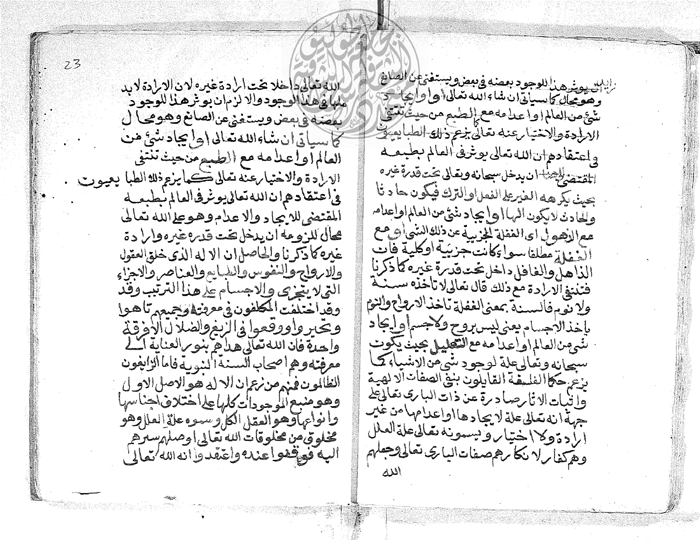 ان يوثر هذا الوجود بعضه في بعض ويستغني عن الصانع
وهو محال كما سياتي ان شاء الله تعالى او ايجاد
شيء من العالم او اعدامه مع الطبع من حيث تنتفي
الارادة والاختيار عنه تعالى كما يزعم ذلك الطبايعيون
في اعتقادهم ان الله تعالى يوثر في العالم بطبعه
المقتضي ان يدخل سبحانه وتعالى تحت قدرة غيره
بحيث يكرهه الغير على الفعل او الترك فيكون حادثا
والحادث لا يكون الها او ايجاد شيء من العالم او اعدامه
مع الذهول اي الغفلة الجزئية عن ذلك الشيء او مع
الغفلة مطلقا سواء كانت جزئية او كلية فان
الذاهل والغافل داخل تحت قدرة غيره كما ذكرنا
فتنتفي الارادة مع ذلك قال تعالى لا تاخذه سنة
ولا نوم فالسنة بمعنى الغفلة تاخذ الارواح والنوم
ياخذ الاجسام يعني ليس بروح ولا جسم او ايجاد
شيء من العالم او اعدامه مع التعليل بحيث يكون
سبحانه وتعالى علة لوجود شيء من الاشياء كما
يزعم حكما الفلسفة القايلون بنفي الصفات الالهية
واثبات الاثار صادرة عن ذات الباري تعالى على
جهة انه تعالى علة لايجادها واعدامها من غير
ارادة ولا اختيار ويسمونه تعالى علة العلل
وهم كفار لانكارهم صفات الباري تعالى وجعلهم
الله
23
الله تعالى داخلا تحت ارادة غيره لان الارادة لابد
منها في هذا الوجود والا لزم ان يوثر هذا الوجود
بعضه في بعض ويستغني عن الصانع وهو محال
كما سياتي ان شاء الله تعالى او ايجاد شيء من
العالم او اعدامه مع الطبع من حيث تنتفي
الارادة والاختيار عنه تعالى كما يزعم ذلك الطبايعيون
في اعتقادهم ان الله تعالى يوثر في العالم بطبعه
المقتضي للايجاد والاعدام وهو على الله تعالى
محال للزومه ان يدخل تحت قدرة غيره وارادة
غيره كما ذكرنا والحاصل ان الاله الذي خلق العقول
والارواح والنفوس والطبايع والعناصر والاجزاء
التي لا يتجزى والاجسام على هذا الترتيب وقد
وقد اختلفت المكلفون في معرفته وجميعهم تاهوا
وتحيروا ووقعوا في الزيغ والضلال الا فرقة
واحدة فان الله تعالى هداهم بنور العناية الى
معرفته وهم اصحاب السنة النبوية فاما الزايغون
الظالمون فمنهم من زعم ان الاله هو الاصل الاول
وهو منبع الموجودات كلها على اختلاف اجناسها
وانواعها وهو العقل الكل وسموه علة العلل وهو
مخلوق من مخلوقات الله تعالى اوصلهم سيرهم
اليه فوقفوا عنده واعتقدوا انه الله تعالى